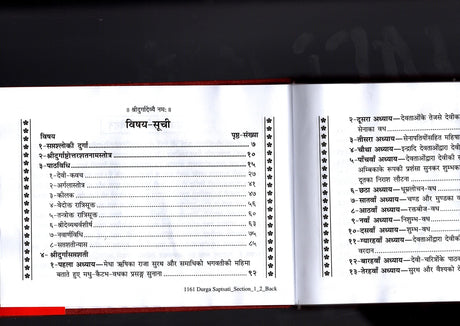 ॥ श्रीदुर्गादेव्यै नमः ॥
विषय-सूची
विषय पृष्ठ-संख्या
१-सप्तश्लोकी दुर्गा ७
२-श्रीदुर्गाष्टोत्तरशतनामस्तोत्र १०
३-पाठविधि १५
१-देवी-कवच २७
२-अर्गलास्तोत्र ४१
३-कीलक ४७
४-वेदोक्त रात्रिसूक्त ५६
५-तन्त्रोक्त रात्रिसूक्त ६०
६-श्रीदेव्यथर्वशीर्ष ६३
७-नवार्णविधि ७५
८-सप्तशतीन्यास ८५
४-श्रीदुर्गासप्तशती
१-पहला अध्याय—मेधा ऋषिका राजा सुरथ और समाधिको भगवतीकी महिमा
बताते हुए मधु-कैटभ-वधका प्रसङ्ग सुनाना ९२
1161 Durga Saptsati_Section_1_2_Back
२-दूसरा अध्याय—देवताओंके तेजसे देवीका
सेनाका वध
३-तीसरा अध्याय—सेनापतियोंसहित महिषा
४-चौथा अध्याय—इन्द्रादि देवताओंद्वारा दे
५-पाँचवाँ अध्याय—देवताओंद्वारा देवीकी स्
अम्बिकाके रूपकी प्रशंसा सुनकर शुम्भका
दूतका निराश लौटना
६-छठा अध्याय—धूम्रलोचन-वध
७-सातवाँ अध्याय—चण्ड और मुण्डका व
८-आठवाँ अध्याय—रक्तबीज-वध
९-नवाँ अध्याय—निशुम्भ-वध
१०-दसवाँ अध्याय—शुम्भ-वध
११-ग्यारहवाँ अध्याय—देवताओंद्वारा देवीकी
वरदान
१२-बारहवाँ अध्याय—देवी-चरित्रोंके पाठक
१३-तेरहवाँ अध्याय—सुरथ और वैश्यको दे